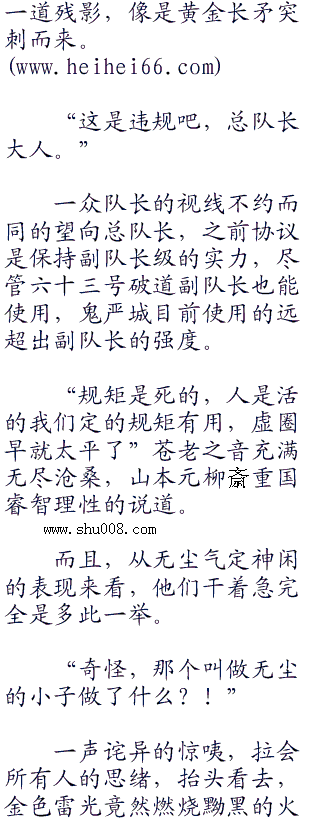 一道残影，像是黄金长矛突
刺而来。
(www.heihei66.com)
“这是违规吧，总队长
大人。”
一众队长的视线不约而
同的望向总队长，之前协议
是保持副队长级的实力，尽
管六十三号破道副队长也能
使用，鬼严城目前使用的远
超出副队长的强度。
“规矩是死的，人是活
的我们定的规矩有用，虚圈
早就太平了”苍老之音充满
无尽沧桑，山本元柳斎重国
睿智理性的说道。
www.shu008.com
而且，从无尘气定神闲
的表现来看，他们干着急完
全是多此一举。
“奇怪，那个叫做无尘
的小子做了什么？！”
一声诧异的惊咦，拉会
所有人的思绪，抬头看去，
金色雷光竟然燃烧黝黑的火